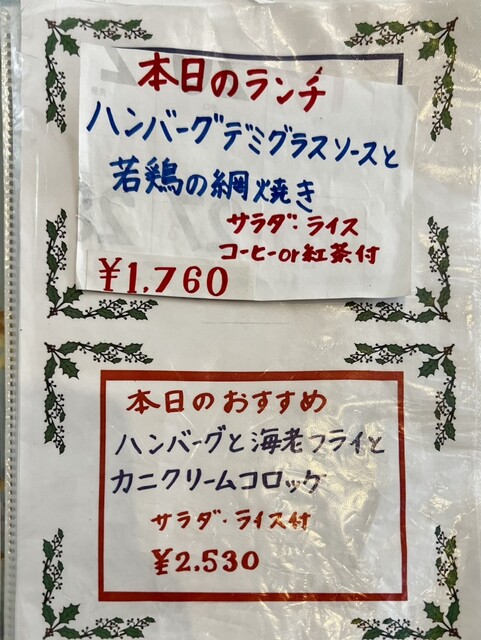 本日のランチ
ハンバーグデミグラスソースと
若鶏の網焼き
サラダ・ライス
コーヒーor紅茶付
¥1,760
本日のおすすめ
ハンバーグと海老フライと
カニクリームコロッケ
サラダ・ライス付
¥2,530